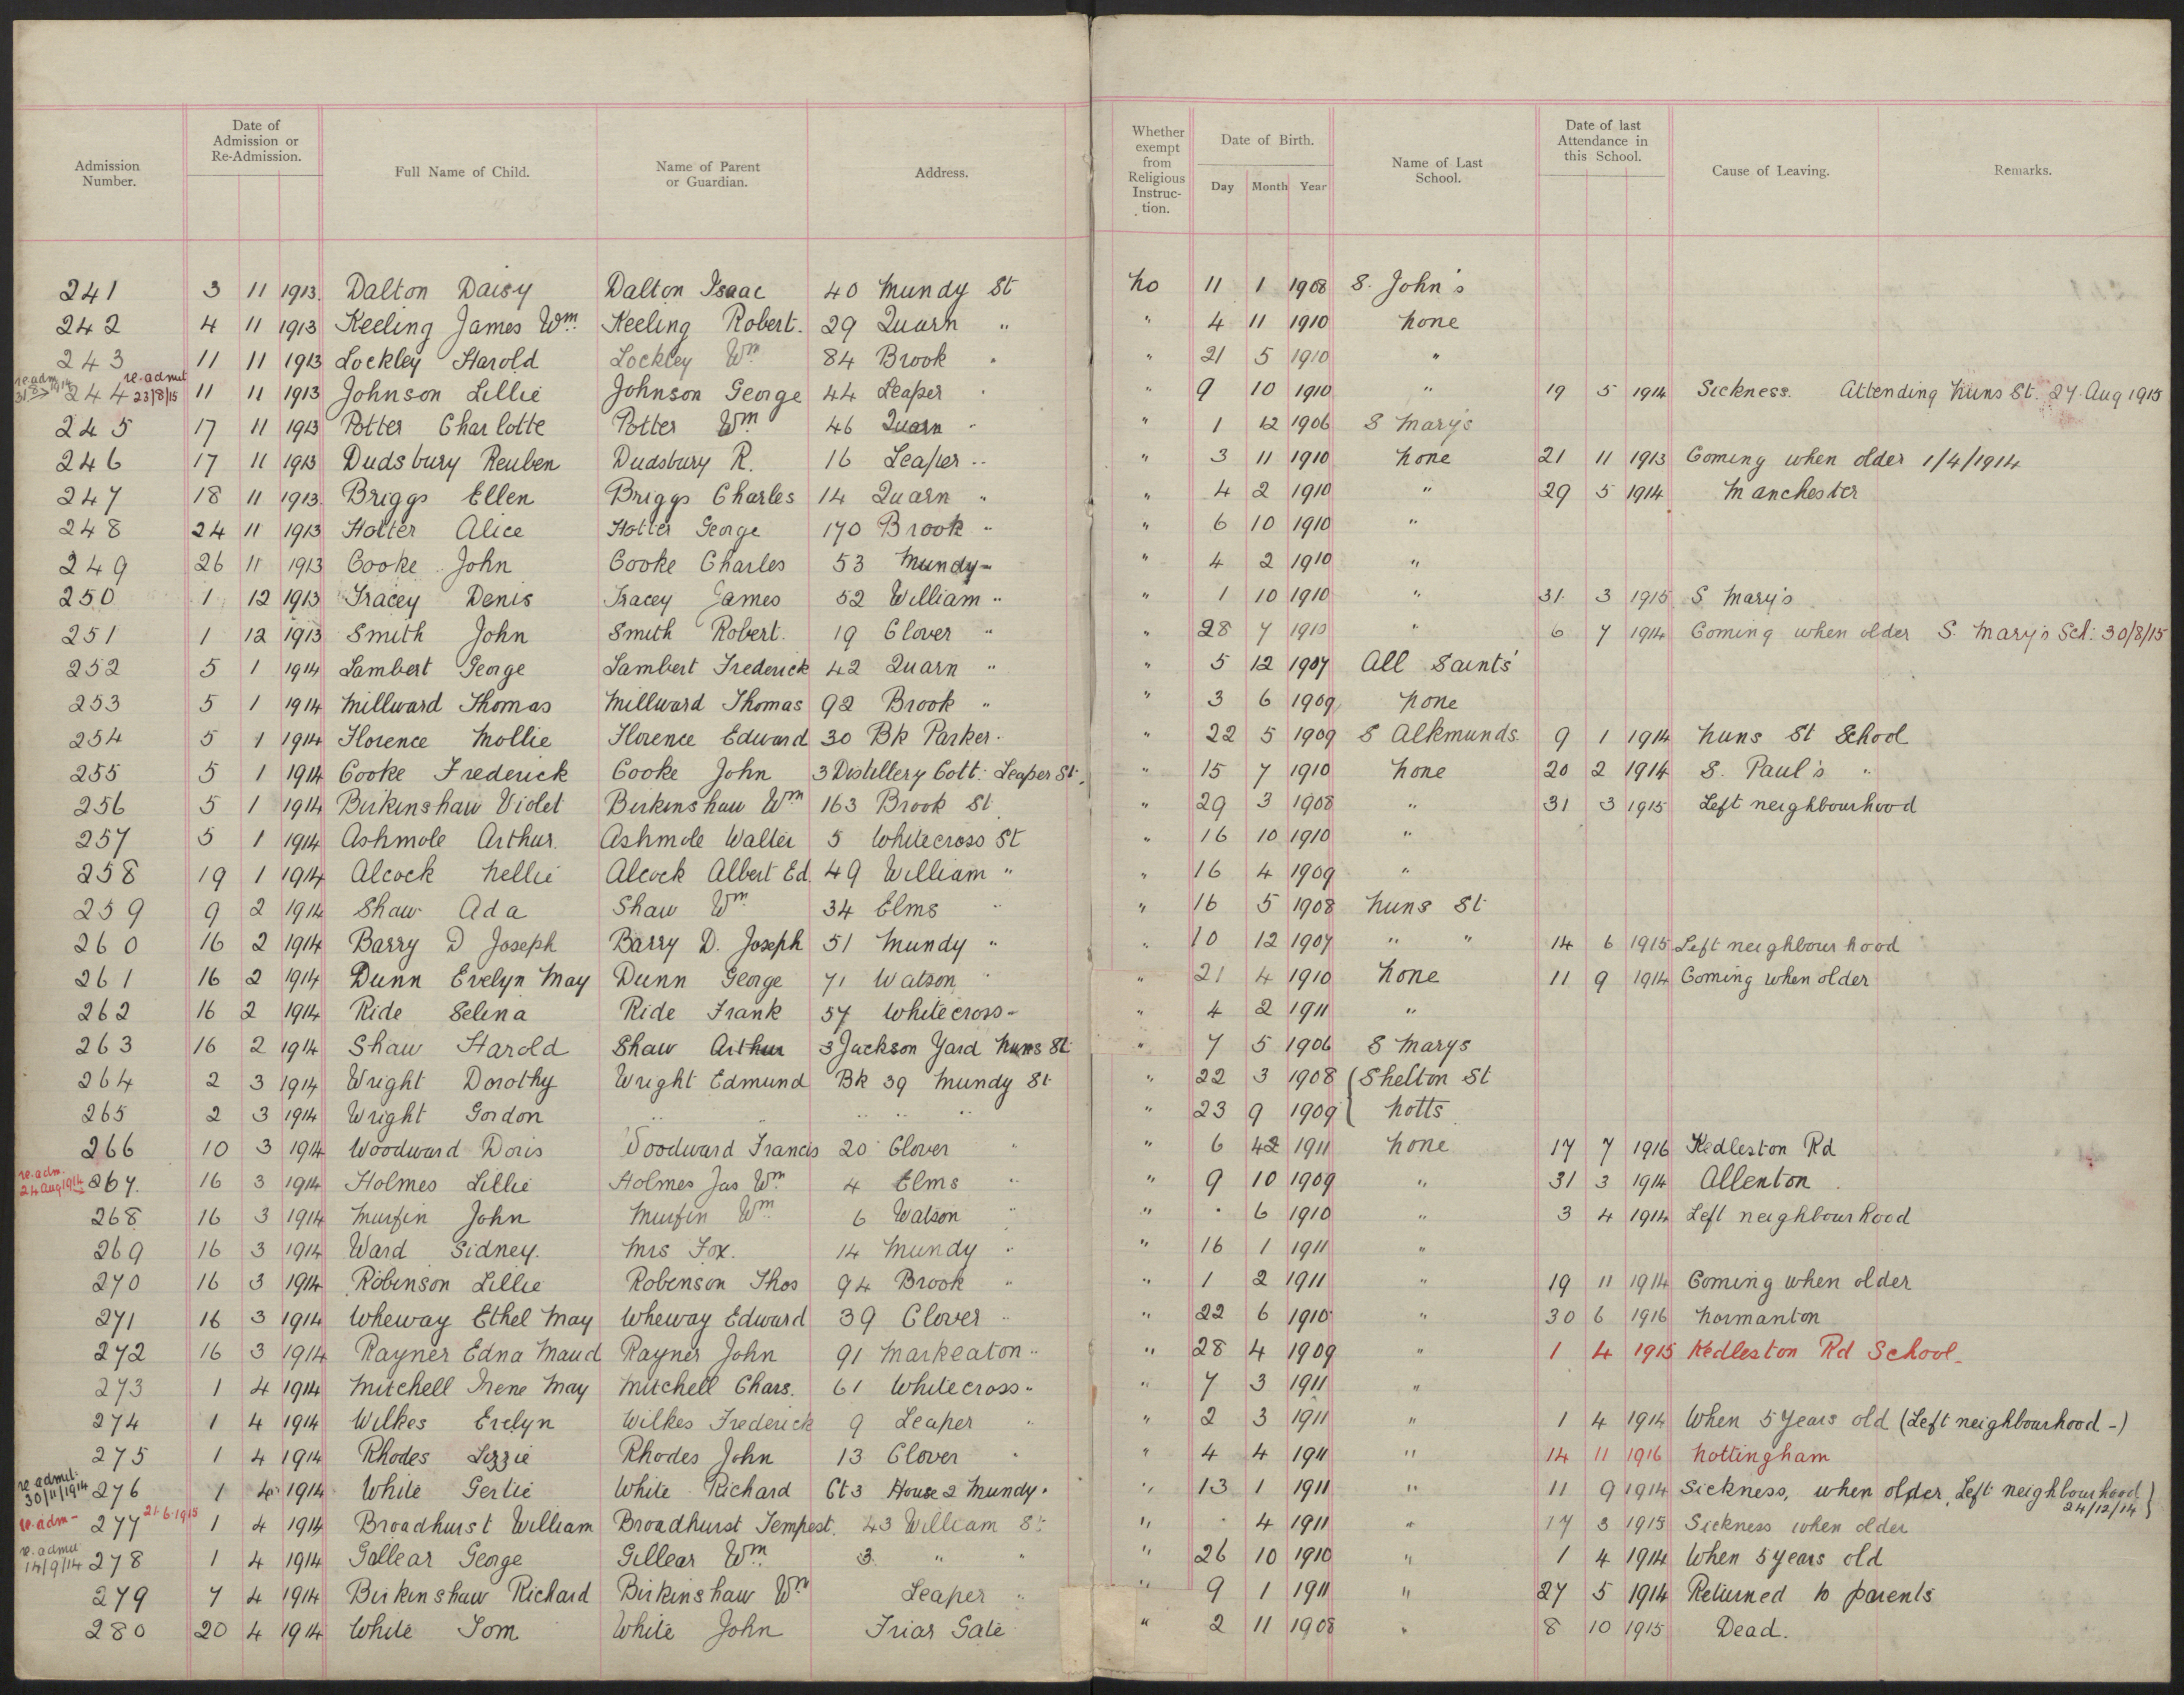 Admission Number. Date of Admission or Re-Admission. Full Name of Child. Name of Parent or Guardian. Address. Whether exempt from Religious Instruc-tion. Date of Birth. Day Month Year Name of Last School. Date of last Attendance in this School. Cause of Leaving. Remarks.
241 3 11 1913. Dalton Daisy Dalton Isaac 40 Mundy St no 11 1 1908 S. John's
242 4 11 1913 Keeling James Wm. Keeling Robert. 29 Quarn " " 4 11 1910 none
243 11 11 1913 Lockley Harold Lockley Wm 84 Brook " " 21 5 1910 "
re.adm 31 8 1914 244 re.admit 23/8/15 11 11 1913 Johnson Lillie Johnson George 44 Leaper " " 9 10 1910 " 19 5 1914 Sickness. Attending Nuns St. 27 Aug 1915
245 17 11 1913 Potter Charlotte Potter Wm 46 Quarn " " 1 12 1906 S Mary's
246 17 11 1913 Dudsbury Reuben Dudsbury R. 16 Leaper " " 3 11 1910 none 21 11 1913 Coming when older 1/4/1914
247 18 11 1913. Briggs Ellen Briggs Charles 14 Quarn " " 4 2 1910 " 29 5 1914 Manchester
248 24 11 1913 Hotter Alice Hotter George 170 Brook " " 6 10 1910 "
249 26 11 1913 Cooke John Cooke Charles 53 Mundy " " 4 2 1910 "
250 1 12 1913 Tracey Denis Tracey James 52 William " " 1 10 1910 " 31 3 1915 S Mary's
251 1 12 1913 Smith John Smith Robert. 19 Clover " " 28 7 1910 " 6 7 1914 Coming when older S. Mary's Sch: 30/8/15
252 5 1 1914 Lambert George Lambert Frederick 42 Quarn " " 5 12 1907 All Saints'
253 5 1 1914 Millward Thomas Millward Thomas 92 Brook " " 3 6 1909 none
254 5 1 1914 Florence Mollie Florence Edward 30 Bk Parker " " 22 5 1909 S Alkmunds 9 1 1914 Nuns St School
255 5 1 1914 Cooke Frederick Cooke John 3 Distillery Cott: Leaper St. " 15 7 1910 none 20 2 1914 S. Paul's "
256 5 1 1914 Birkinshaw Violet Birkinshaw Wm 163 Brook St " 29 3 1908 " 31 3 1915 Left neighbourhood
257 5 1 1914 Ashmole Arthur. Ashmole Walter 5 Whitecross St " 16 10 1910 "
258 19 1 1914 Alcock Nellie Alcock Albert Ed. 49 William " " 16 4 1909 "
259 9 2 1914 Shaw Ada Shaw Wm 34 Elms " " 16 5 1908 Nuns St
260 16 2 1914 Barry D Joseph Barry D. Joseph 51 Mundy " " 10 12 1907 " " 14 6 1915 Left neighbourhood
261 16 2 1914 Dunn Evelyn May Dunn George 71 Watson " " 21 4 1910 none 11 9 1914 Coming when older
262 16 2 1914 Ride Selina Ride Frank 57 Whitecross " " 4 2 1911 "
263 16 2 1914 Shaw Harold Shaw Arthur 3 Jackson Yard Nuns St " 7 5 1906 S Marys
264 2 3 1914 Wright Dorothy Wright Edmund Bk 39 Mundy St " 22 3 1908 ( Shelton St
265 2 3 1914 Wright Gordon " " " " " " 23 9 1909 ( Notts
266 10 3 1914 Woodward Doris Woodward Francis 20 Clover " " 6 2 1911 none 17 7 1916 Kedleston Rd
re.adm. 24 Aug 1914 267. 16 3 1914 Holmes Lillie Holmes Jas Wm. 4 Elms " " 9 10 1909 " 31 3 1914 Allenton
268 16 3 1914 Murfin John Murfin Wm. 6 Watson " " . 6 1910 " 3 4 1914 Left neighbourhood
269 16 3 1914 Ward Sidney. Mrs Fox. 14 Mundy " " 16 1 1911 "
270 16 3 1914 Robinson Lillie Robinson Thos 94 Brook " " 1 2 1911 " 19 11 1914 Coming when older
271 16 3 1914 Wheway Ethel May Wheway Edward 39 Clover " " 22 6 1910 " 30 6 1916 Normanton
272 16 3 1914 Rayner Edna Maud Rayner John 91 Markeaton " " 28 4 1909 " 1 4 1915 Kedleston Rd School
273 1 4 1914 Mitchell Irene May Mitchell Chars. 61 Whitecross " " 7 3 1911 "
274 1 4 1914 Wilkes Evelyn Wilkes Frederick 9 Leaper " " 2 3 1911 " 1 4 1914 When 5 years old (Left neighbourhood -)
275 1 4 1914 Rhodes Lizzie Rhodes John 13 Clover " " 4 4 1911 " 14 11 1916 Nottingham
re admit. 30/11/1914 276 1 4 1914 White Gertie White Richard Ct 3 House 2 Mundy " " 13 1 1911 " 11 9 1914 Sickness, when older, Left neighbourhood 24/12/14 }
re.adm- 277 21.6.1915 1 4 1914 Broadhurst William Broadhurst Tempest. 43 William St " . 4 1911 " 17 3 1915 Sickness when older
re.admit 14/9/14 278 1 4 1914 Gillear George Gillear Wm. 3. " " " 26 10 1910 " 1 4 1914 When 5 years old
279 7 4 1914 Birkinshaw Richard Birkinshaw Wm Leaper " " 9 1 1911 " 27 5 1914 Returned to parents
280 20 4 1914 White Tom White John Friar Gate " 2 11 1908 " 8 10 1915 Dead.